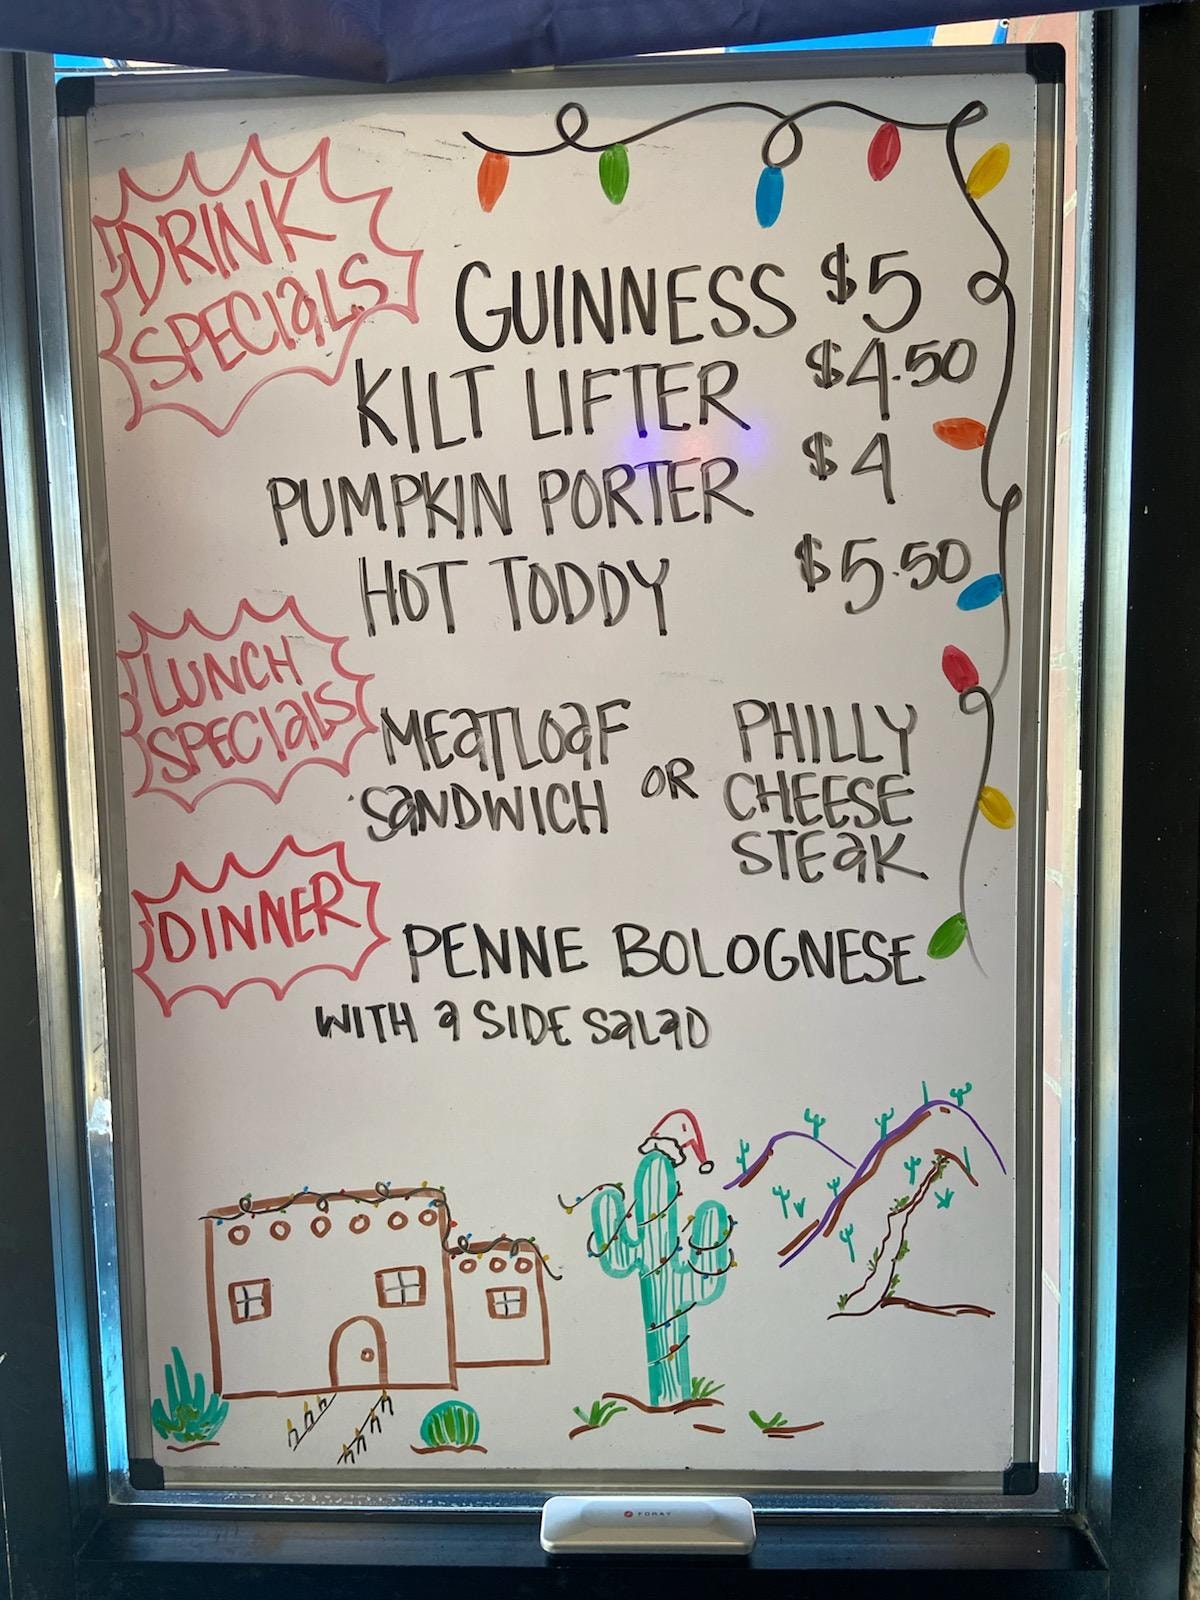 DRINK
SPECIALS
GUINNESS $5
KILT LIFTER $4.50
PUMPKIN PORTER $4
HOT TODDY $5.50
LUNCH
SPECIALS
MEATLOAF
SANDWICH
OR
PHILLY
CHEESE
STEAK
DINNER
PENNE BOLOGNESE
WITH A SIDE SALAD
FORAY